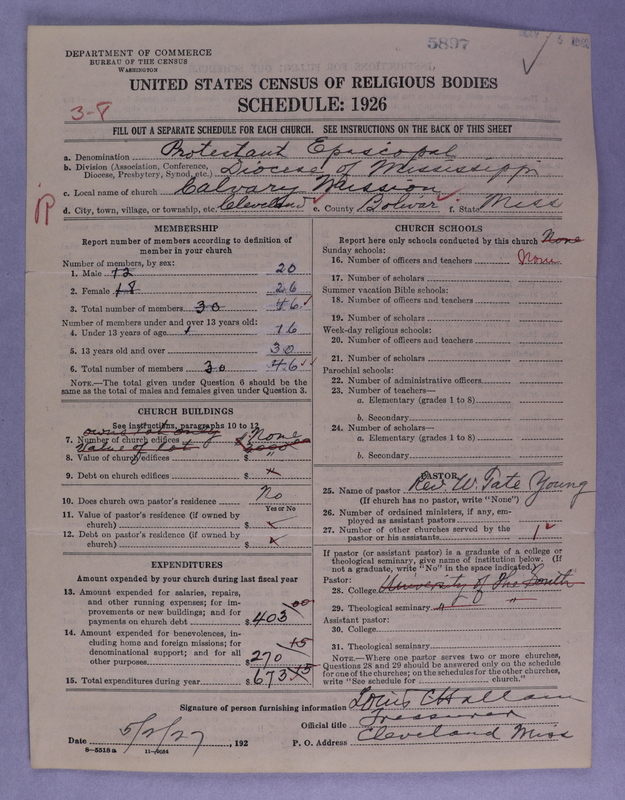 5897
DEPARTMENT OF COMMERCE
BUREAU OF THE CENSUS
WASHINGTON
UNITED STATES CENSUS OF RELIGIOUS BODIES
SCHEDULE: 1926
3-8
FILL OUT A SEPARATE SCHEDULE FOR EACH CHURCH. SEE INSTRUCTIONS ON THE BACK OF THIS SHEET
a. Denomination Protestant Episcopal
b. Division (Association, Conference, Diocese, Presbytery, Synod, etc.) Diocese of Mississippi
c. Local name of church Calvary Mission
d. City, town, village, or township, etc. Cleveland e. County Bolivar f. State Miss
MEMBERSHIP
Report number of members according to definition of member in your church
Number of members, by sex:
1. Male 12 20
2. Female 18 26
3. Total number of members 30 46
Number of members under and over 13 years old:
4. Under 13 years of age 16
5. 13 years old and over 30
6. Total number of members 30 46
NOTE.—The total given under Question 6 should be the same as the total of males and females given under Question 3.
CHURCH BUILDINGS
See instructions, paragraphs 10 to 12
owns lot only
7. Number of church edifices None
Value of Lot
8. Value of church edifices $
9. Debt on church edifices $ x
10. Does church own pastor's residence No
Yes or No
11. Value of pastor's residence (if owned by church) $ x
12. Debt on pastor's residence (if owned by church) $ x
EXPENDITURES
Amount expended by your church during last fiscal year
13. Amount expended for salaries, repairs, and other running expenses; for improvements or new buildings; and for payments on church debt $ 403 00
14. Amount expended for benevolences, including home and foreign missions; for denominational support; and for all other purposes $ 270 15
15. Total expenditures during year $ 673 15
CHURCH SCHOOLS
Report here only schools conducted by this church None
Sunday schools:
16. Number of officers and teachers None
17. Number of scholars
Summer vacation Bible schools:
18. Number of officers and teachers
19. Number of scholars
Week-day religious schools:
20. Number of officers and teachers
21. Number of scholars
Parochial schools:
22. Number of administrative officers
23. Number of teachers—
a. Elementary (grades 1 to 8)
b. Secondary
24. Number of scholars—
a. Elementary (grades 1 to 8)
b. Secondary
PASTOR
25. Name of pastor Rev W. Tate Young
(If church has no pastor, write "None")
26. Number of ordained ministers, if any, employed as assistant pastors
27. Number of other churches served by the pastor or his assistants 1
If pastor (or assistant pastor) is a graduate of a college or theological seminary, give name of institution below. (If not a graduate, write "No" in the space indicated.)
Pastor:
28. College University of The South
29. Theological seminary
Assistant pastor:
30. College
31. Theological seminary
NOTE.—Where one pastor serves two or more churches, Questions 28 and 29 should be answered only on the schedule for one of the churches; on the schedules for the other churches, write "See schedule for church."
Signature of person furnishing information Louis C Hallam
Official title Treasurer
Date 5/2/27, 192 P. O. Address Cleveland Miss
8-5518a